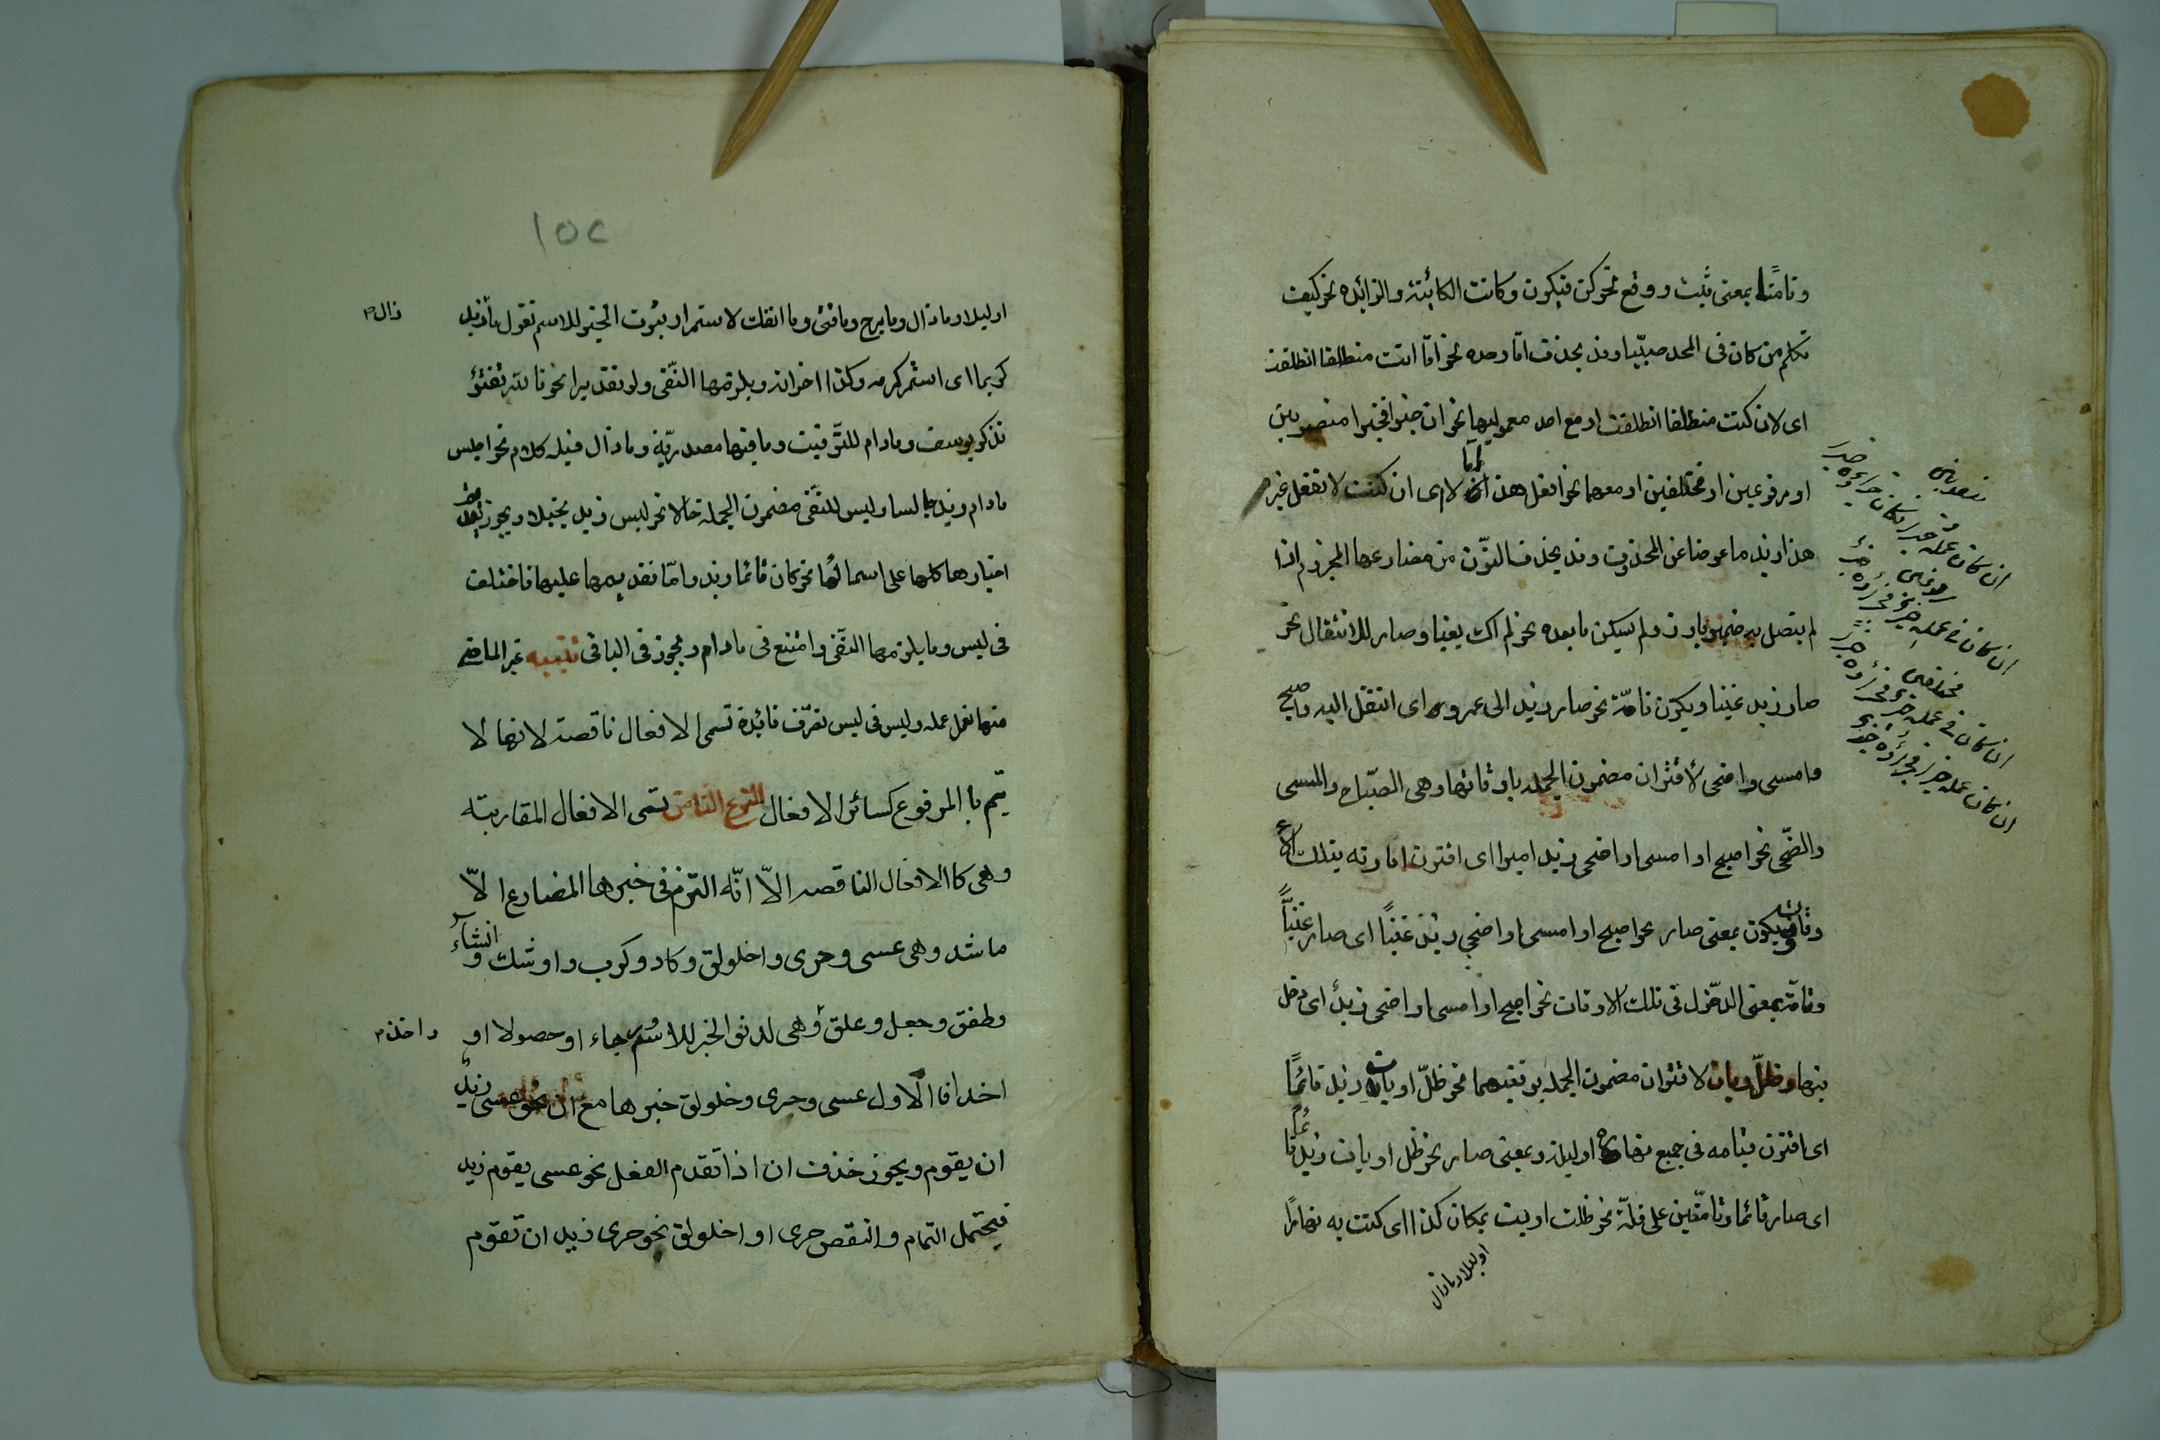 وتامتا بمعنى ثبت ووقع نحو كن فيكون وكانت الكائنة والزائده نحو كيف
تكلم من كان فى المحد صبيّا وقد يحذف امّا وحده نحو امّا انت منطلقا انطلقت
اى لان كنت منطلقا انطلقت او مع احد معموليها نحو ان خيرا فخيرا منصوبين
او مرفوعين او مختلفين او معهما نحو افعل هذا امّا لا اى ان كنت لا تفعل غيره
هذا وزيد ما عوضا عن المحذوف وقد يحذف النّون من مضارعها المجزوم اذا
لم يتصل به ضمير بارز ولم يسكن ما بعده نحو لم اك بغيا وصار للانتقال نحو
صار زيد غنيا ويكون تامّة نحو صار زيد الى عمرو اى انتقل اليه واصبح
وامسى واضحى لأقتران مضمون الجمله باوقاتها وهى الصّباح والمسى
والضّحى نحو اصبح او امسى او اضحى زيد اميرا اى اقترن امارته بتلك
ويكون بمعنى صار نحو اصبح او امسى او اضحى زيد غنيّاً اى صار غنيّاً
وتامّة بمعنى الدخول فى تلك الاوقات نحو اصبح او امسى او اضحى زيدٌ اى دخل
فيها وظلّ وبات لاقتران مضمون الجمله بوقتيهما نحو ظلّ او بات زيد قائمًا
اى اقترن قيامه فى جميع نهاره او ليلته وبمعنى صار نحو ظل او بات زيد قائما
اى صار قائما وتامّتين على قلّة نحو ظلت او بت بمكان كذا اى كنت به نهارًا
او ليلا وما زال
منصوبين
ان كان عمله خيرا فكان جزاءه خيرا
مرفوعين
ان كان فى عمله خير فجزاؤه خير
مختلفين
ان كان فى عمله خير فجزاؤه خيرا
ان كان عمله خيرا فجزاؤه خير
١٥٢
او ليلا وما زال وما برح وما فتئ وما انفك لاستمرار ثبوت الخبر للاسم تقول ما زيد
زال
كريما اى استمر كرمه وكذا اخواته ويلزمها النّفى ولو تقديرا نحو تالله تفتؤ
تذكر يوسف وما دام للتّوقيت وما فيها مصدريّة وما زال قبله كلام نحو اجلس
ما دام زيد جالسا وليس للنفى مضمون الجملة حالا نحو ليس زيد بخيلا ويجوز تقديم
اخبارها كلها على اسمائها نحو كان قائما زيد وامّا تقديمها عليها فاختلف
فى ليس وما يلزمها النّفى وامتنع فى ما دام ويجوز فى الباقى تنبيه غير الماضى
منها يعمل عمله وليس فى ليس تصرّف فائدة تسمى الافعال ناقصة لانها لا
يتم با المرفوع كسائر الافعال النوع الثامن تسمى الافعال المقاربته
وهى كا الافعال الناقصه الاّ انّه التزم فى خبرها المضارع الاّ
ما شد وهى عسى وحرى واخلولق وكاد وكرب واوشك وانشاء
وطفق وجعل وعلق وهى لدنو الخبر للاسم رجاء او حصولا او
واخذ
اخدا فا الاول عسى وحرى وخلولق خبرها مع ان نحو عسى زيدٌ
ان يقوم ويجوز خذف ان اذا تقدم الفعل نحو عسى يقوم زيد
فيحتمل التمام والنقص حرى او اخلولق نحو حرى زيد ان تقوم